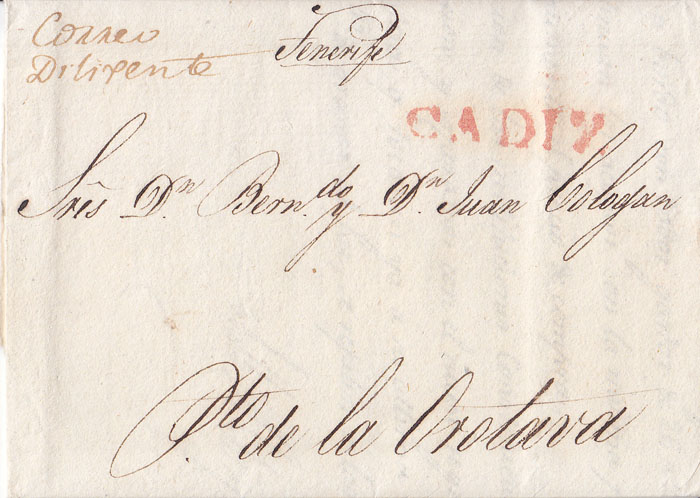 Correo
Diligente
Tenerife
CADIZ
Srẽs Dn. Bern.do y Dn. Juan Cologan
Pto de la Orotava